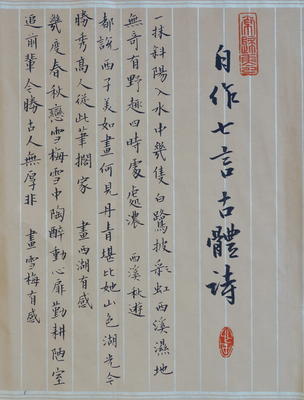 自作七言古體詩
一抹斜陽入水中幾隻白鷺披彩虹西溪濕地
無奇有野趣四時處處濃　西溪秋遊
都說西子美如畫何見丹青堪比她山色湖光今
勝秀高人從此筆擱家　畫西湖有感
幾度春秋戀雪梅雪中陶醉動心扉勤耕陋室
追前輩今勝古人無厚非　畫雪梅有感